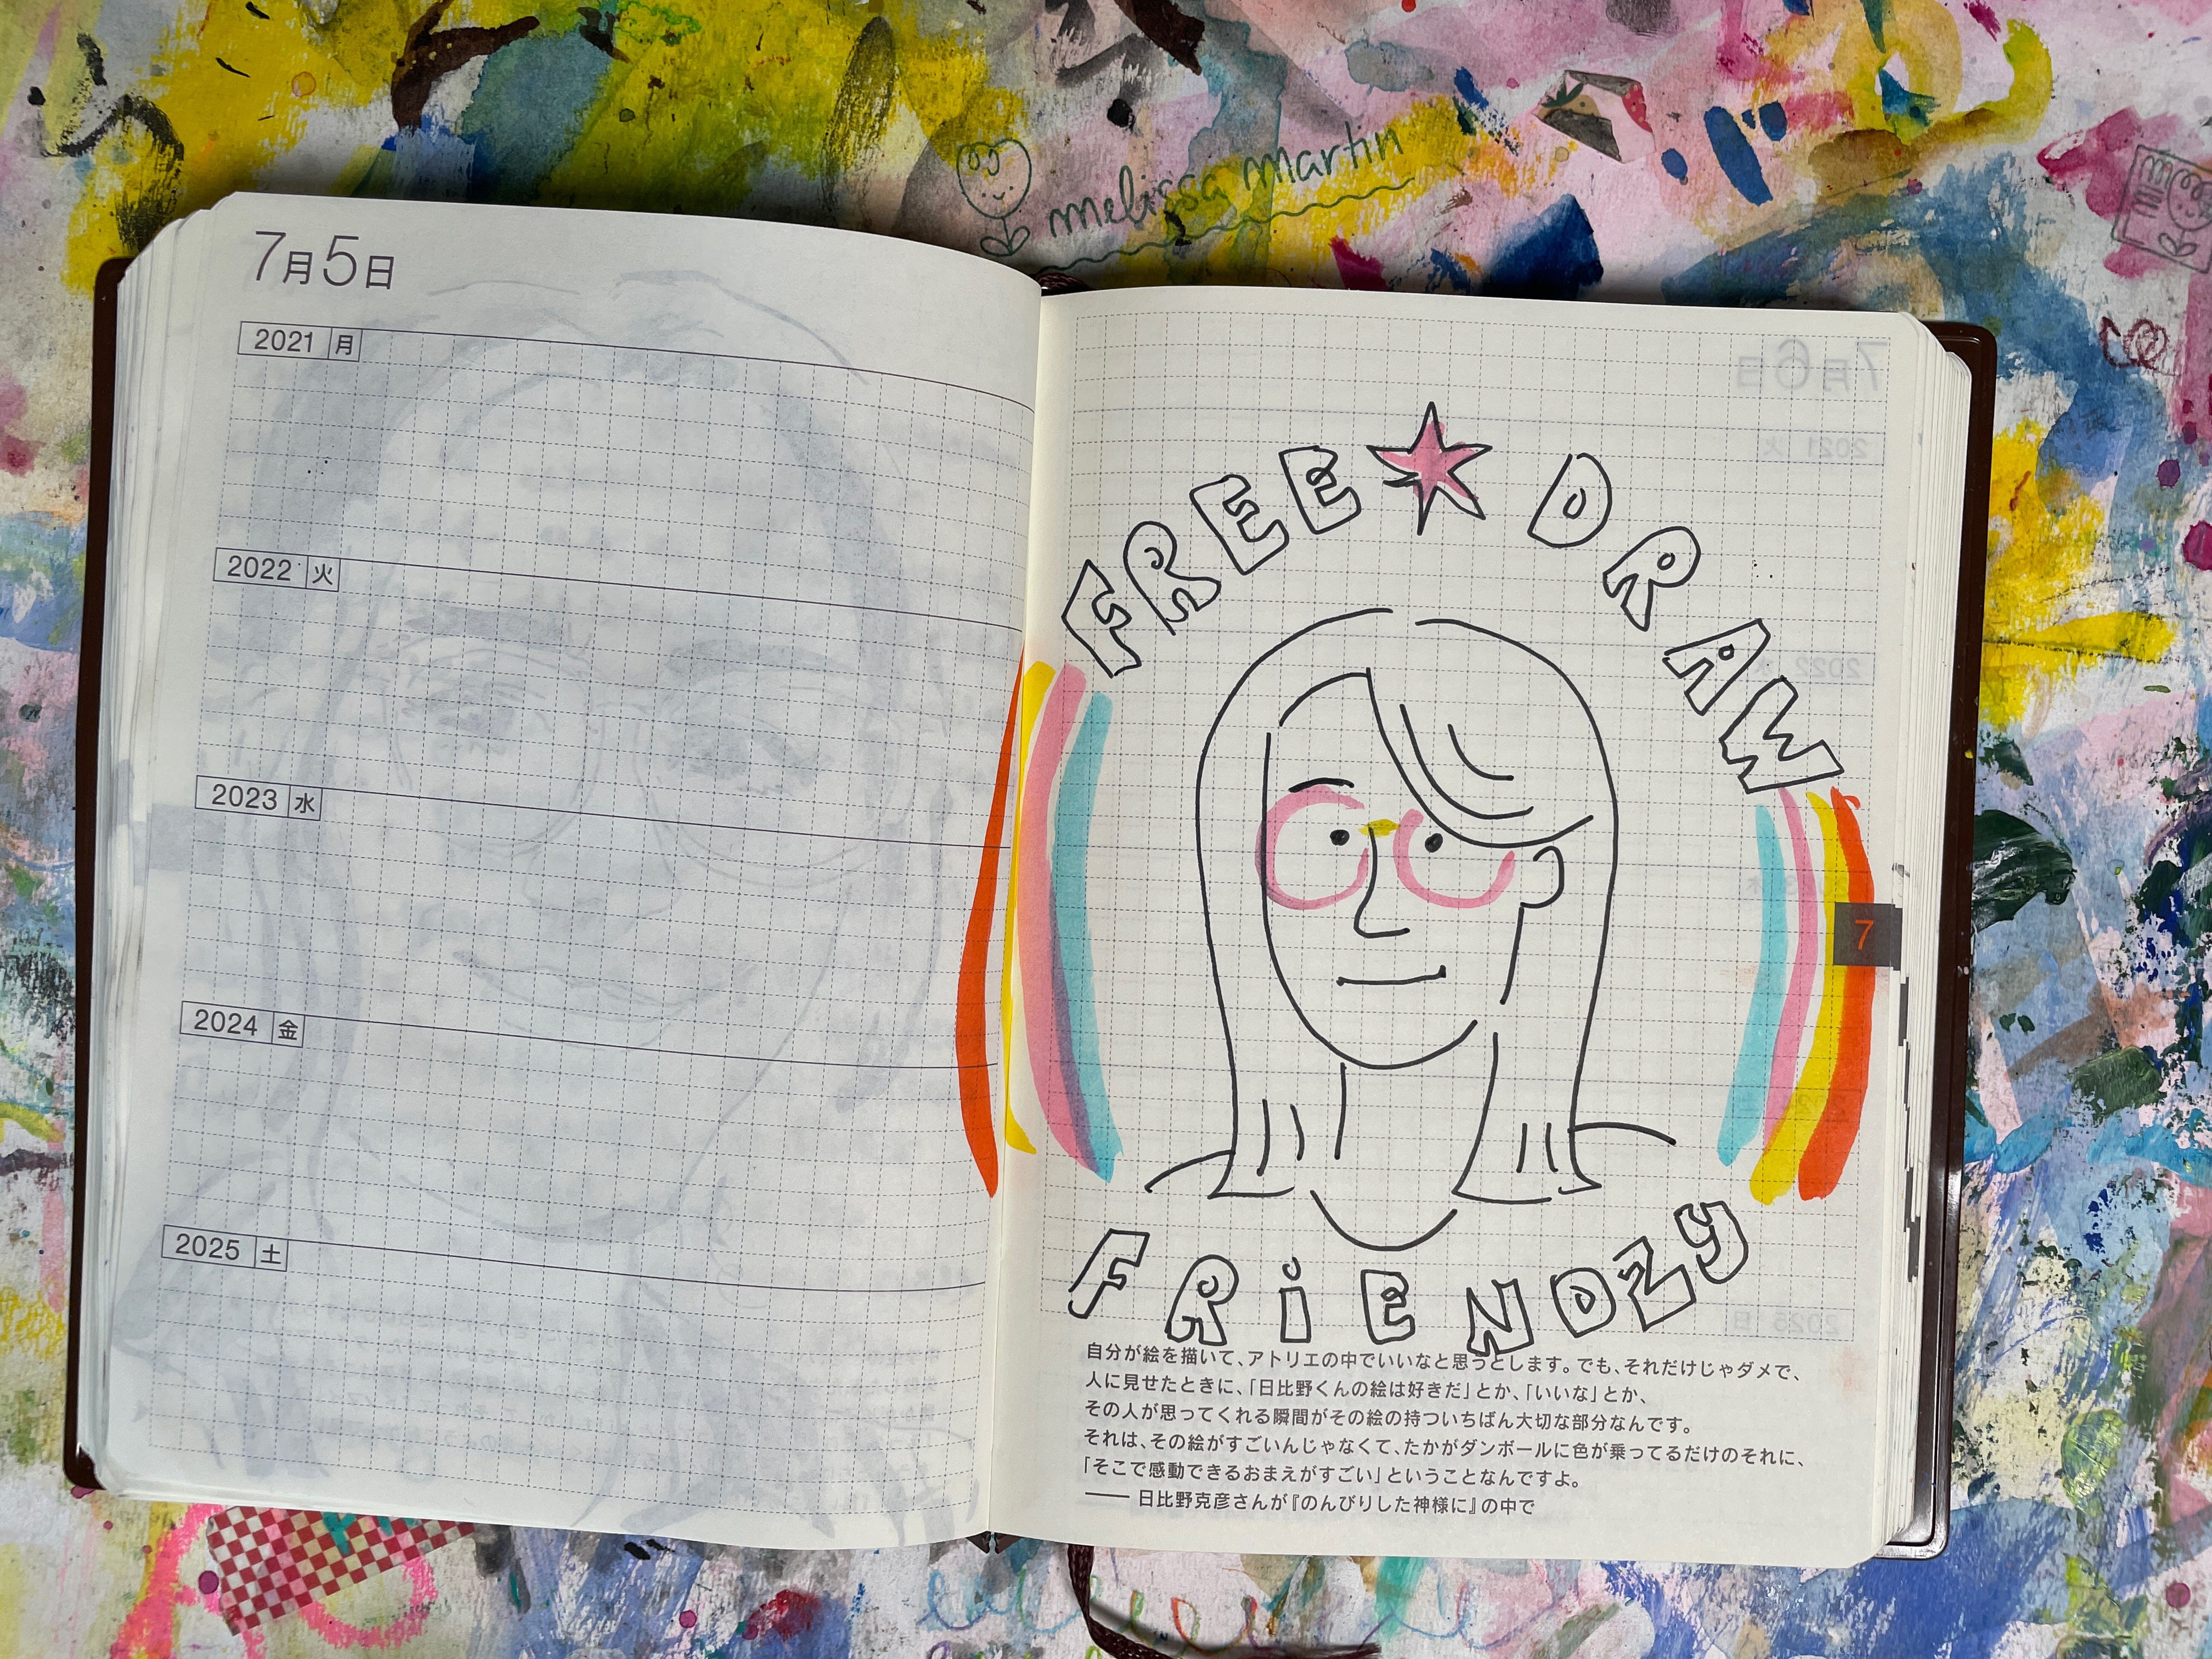 melissa martin
7月5日
2021 月
2022 火
2023 水
2024 金
2025 土
FREE DRAW
7
FRiENDZY
自分が絵を描いて、アトリエの中でいいなと思うとします。でも、それだけじゃダメで、
人に見せたときに、「日比野くんの絵は好きだ」とか、「いいな」とか、
その人が思ってくれる瞬間がその絵の持ついちばん大切な部分なんです。
それは、その絵がすごいんじゃなくて、たかがダンボールに色が乗ってるだけのそれに、
「そこで感動できるおまえがすごい」ということなんですよ。
―― 日比野克彦さんが『のんびりした神様に』の中で